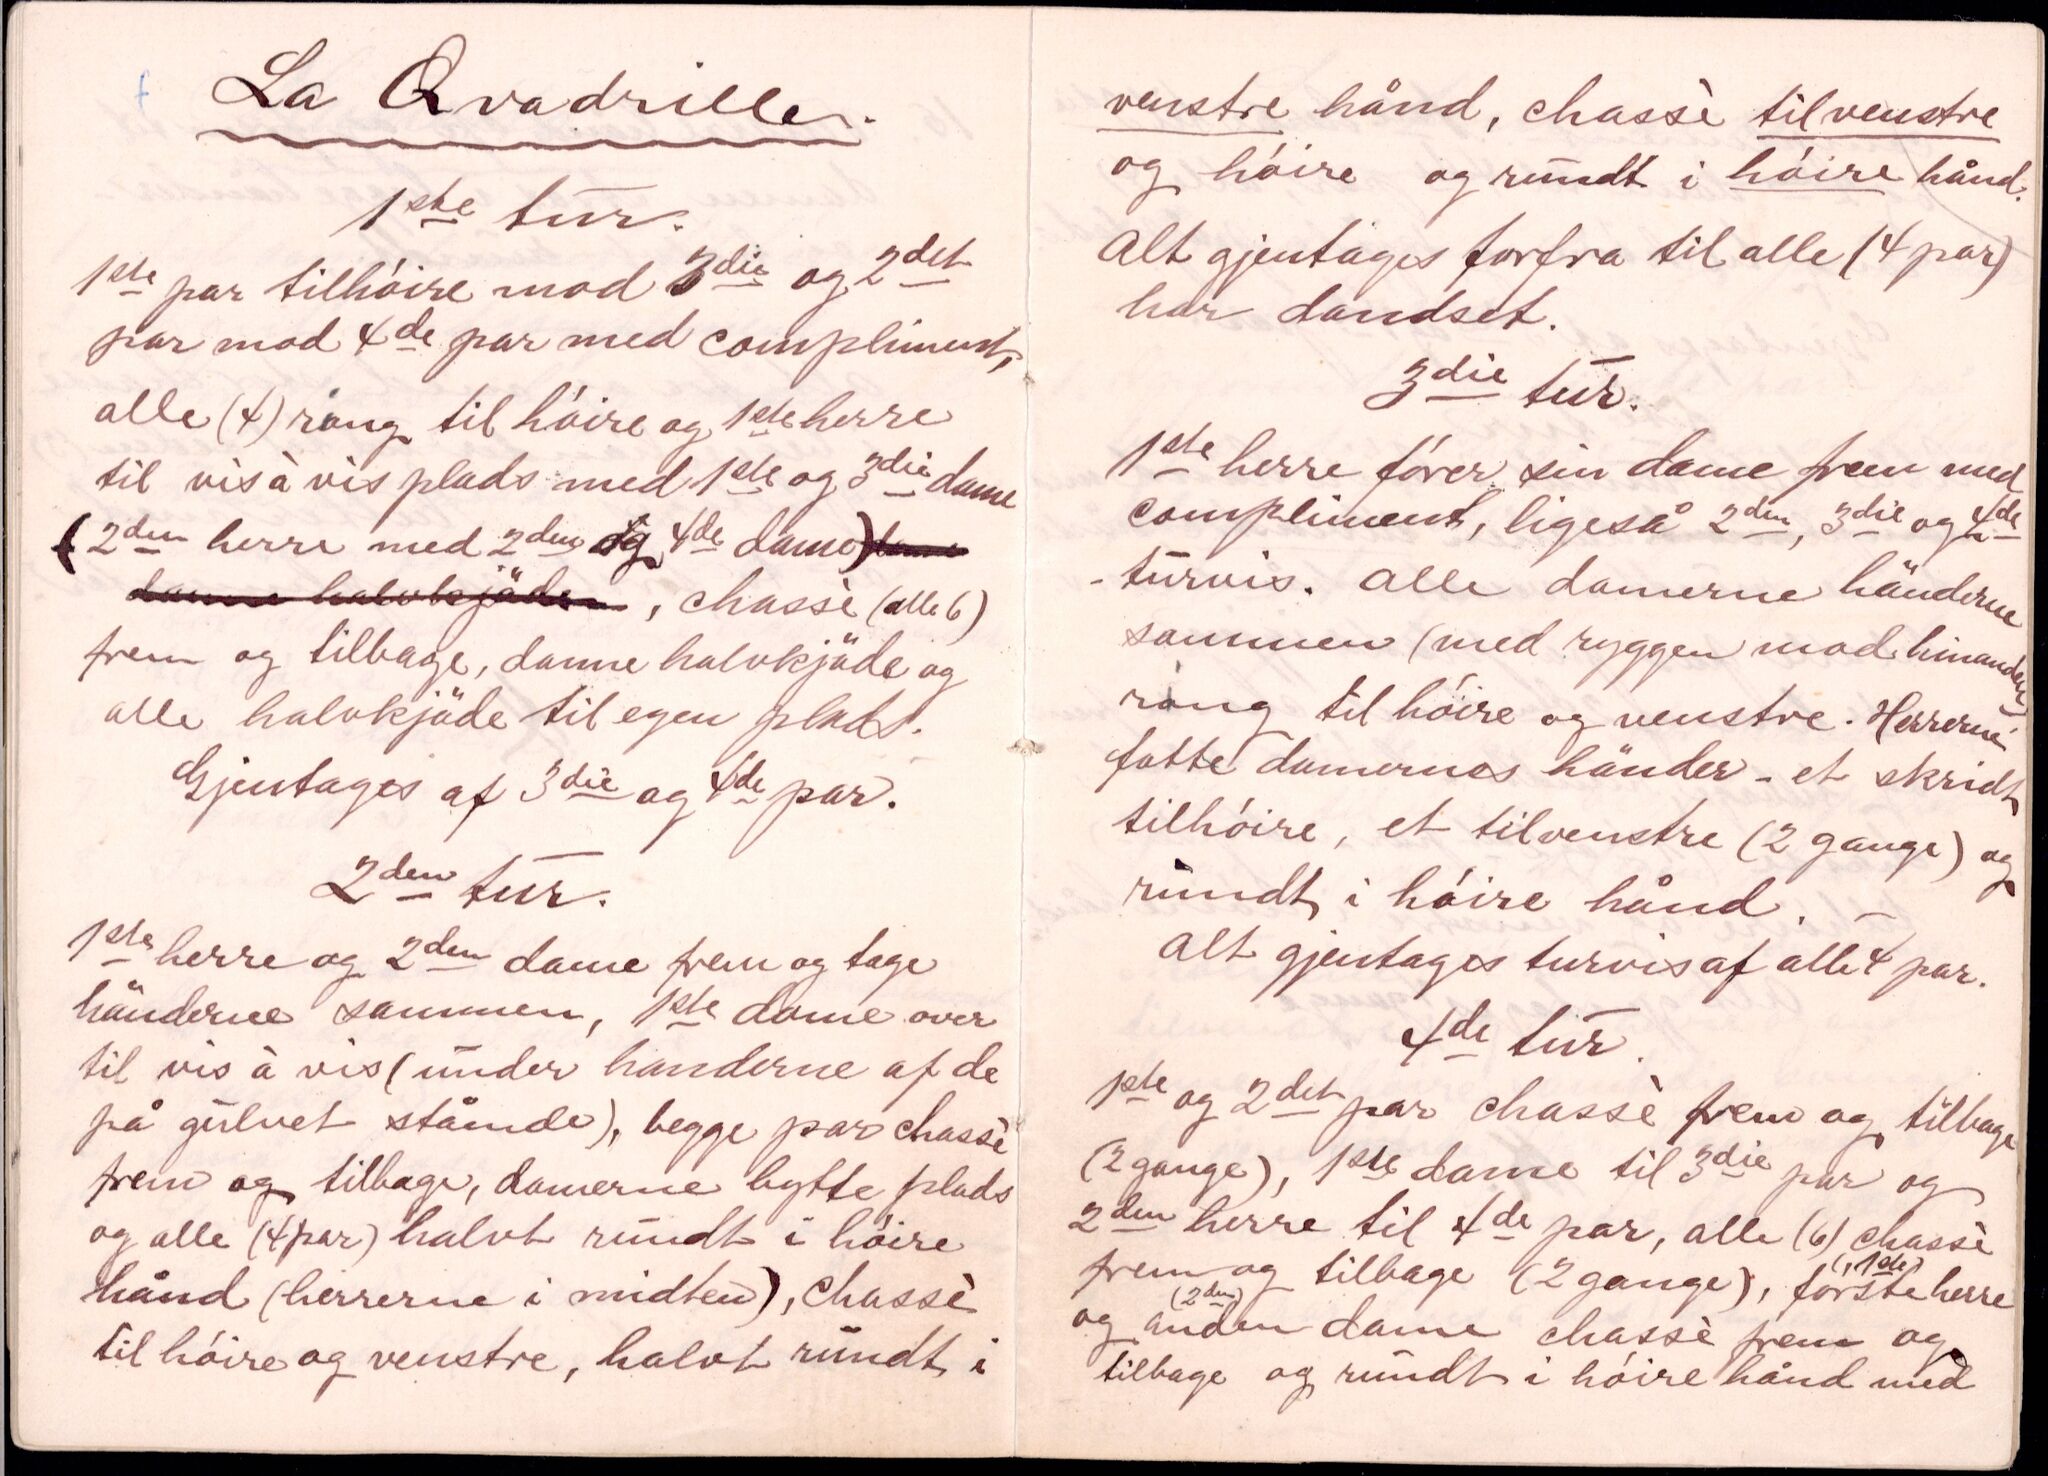 La Qvadrille.
1ste tur.
1ste par tilhóire mod 3die og 2det
par mod 4de par med compliment,
alle (4) ring til hóire og 1ste herre
til vis à vis plads med 1ste og 3die dame
(2den herre med 2den og 4de dame)
danne halvkjäde, chassè (alle 6)
frem og tilbage, danne halvkjäde og
alle halvkjäde til egen plads.
Gjentages af 3die og 4de par.
2den tur.
1ste herre og 2den dame frem og tage
händerne sammen, 1ste dame over
til vis à vis (under handerne af de
på gulvet stånde), begge par chassè
frem og tilbage, damerne bytte plads
og alle (4 par) halvt rundt i hóire
hånd (herrerne i midten), chassè
til hóire og venstre, halvt rundt i
venstre hånd, chassè til venstre
og hóire og rundt i hóire hånd.
Alt gjentages forfra til alle (4 par)
har dandset.
3die tur.
1ste herre fórer sin dame frem med
compliment, ligeså 2den, 3die og 4de
-turvis. Alle damerne händerne
sammen (med ryggen mod hinanden)
ring til hóire og venstre. Herrerne
fatte damernes händer - et skridt
tilhóire, et tilvenstre (2 gange) og
rundt i hóire hånd. -
Alt gjentages turvis af alle 4 par.
4de tur.
1ste og 2det par chassè frem og tilbage
(2 gange), 1ste dame til 3die par og
2den herre til 4de par, alle (6) chassè
frem og tilbage (2 gange), fórste (1ste) herre
og anden (2den) dame chassè frem og
tilbage og rundt i hóire hånd med